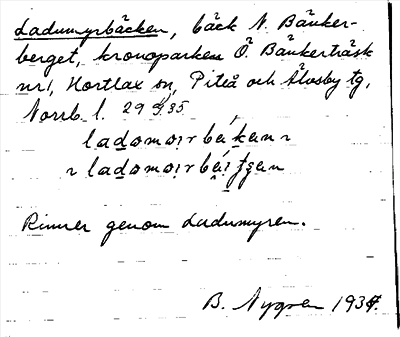 Ladumyrbäcken, bäck N. Bänker-
berget, kronoparken Ö. Bänkerträsk
nr 1, Hortlax sn, Piteå och Älvsby tg,
Norrb. l. 29 9/5 35
ladomoirbäkan
ladomoirbäitsan
Rinner genom Ladumyren.
B. Nygren 1934.